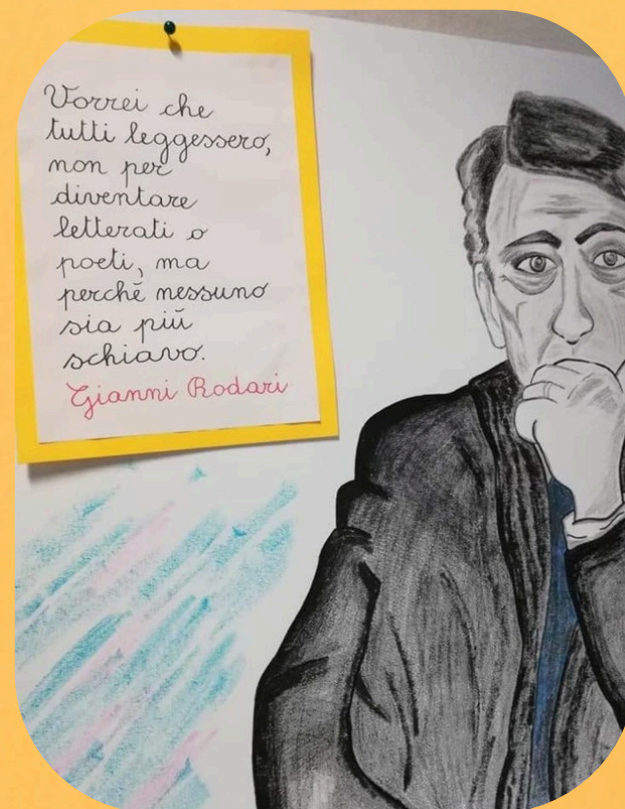 Vorrei che
tutti leggessero,
non per
diventare
letterati o
poeti, ma
perchè nessuno
sia più
schiavo.
Gianni Rodari